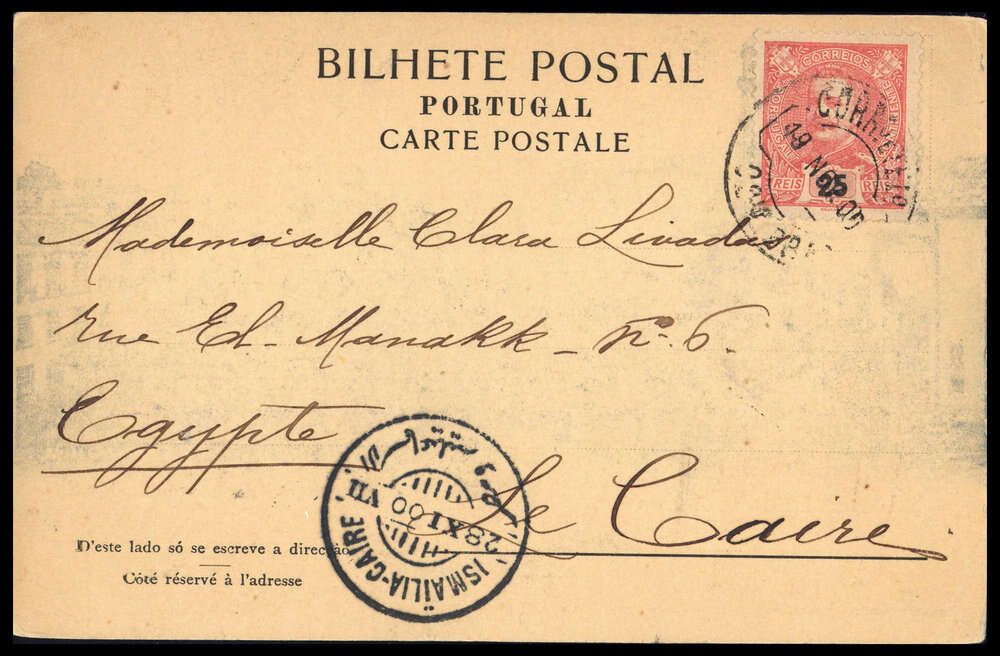 BILHETE POSTAL
PORTUGAL
CARTE POSTALE
CORREIOS
PORTUGAL
REIS 25 REIS
19 NOV 00
Mademoiselle Clara Livadas
rue El-Manakk - No. 6.
Egypte
Le Caire
ISMAÏLIA-CAIRE
28 XI 00
VII
D'este lado só se escreve a direcção
Côté réservé à l'adresse